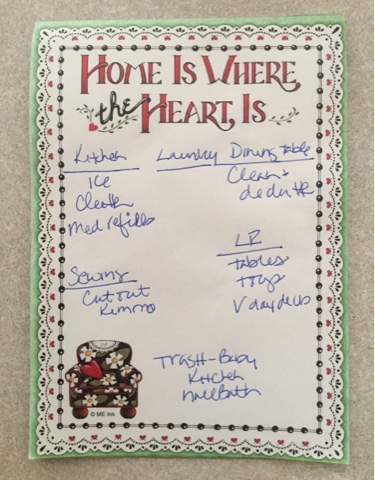 HOME IS WHERE
the HEART IS
Kitchen
Ice
Med refills
Laundry
Dining table
Clean &
Sewing
Cut out
Kimono
LR
tables
toys
V day decos
Trash-Busy
Kitchen
© ME Ink